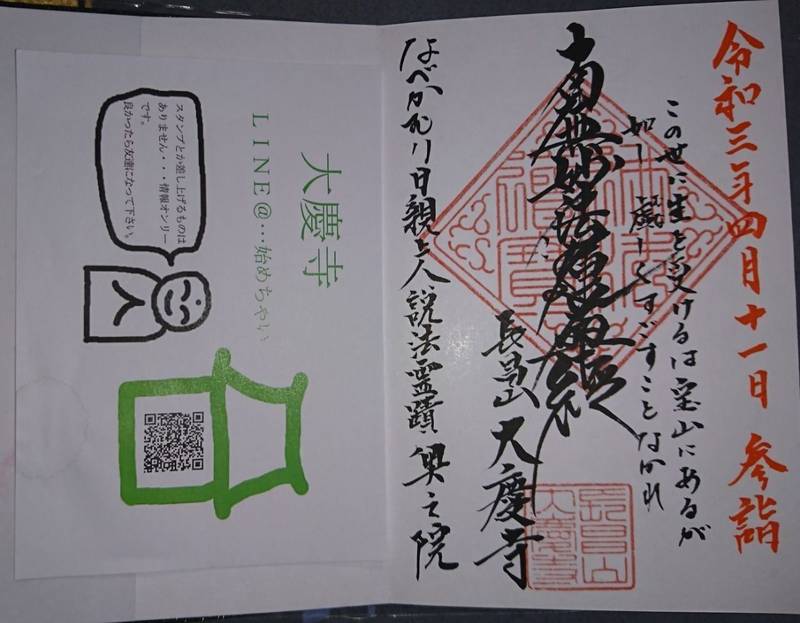 令和三年四月十一日 参詣
このせに生を受けるは宝山にあるが
如し 戯しくすごすことなかれ
南無妙法蓮華経
長昌山 大慶寺
なべかむり日親上人説法霊蹟 奥之院
大慶寺
LINE@…始めちゃい
スタンプとか差し上げるものは
ありません・・・情報オンリー
です。
良かったら友達になって下さい。